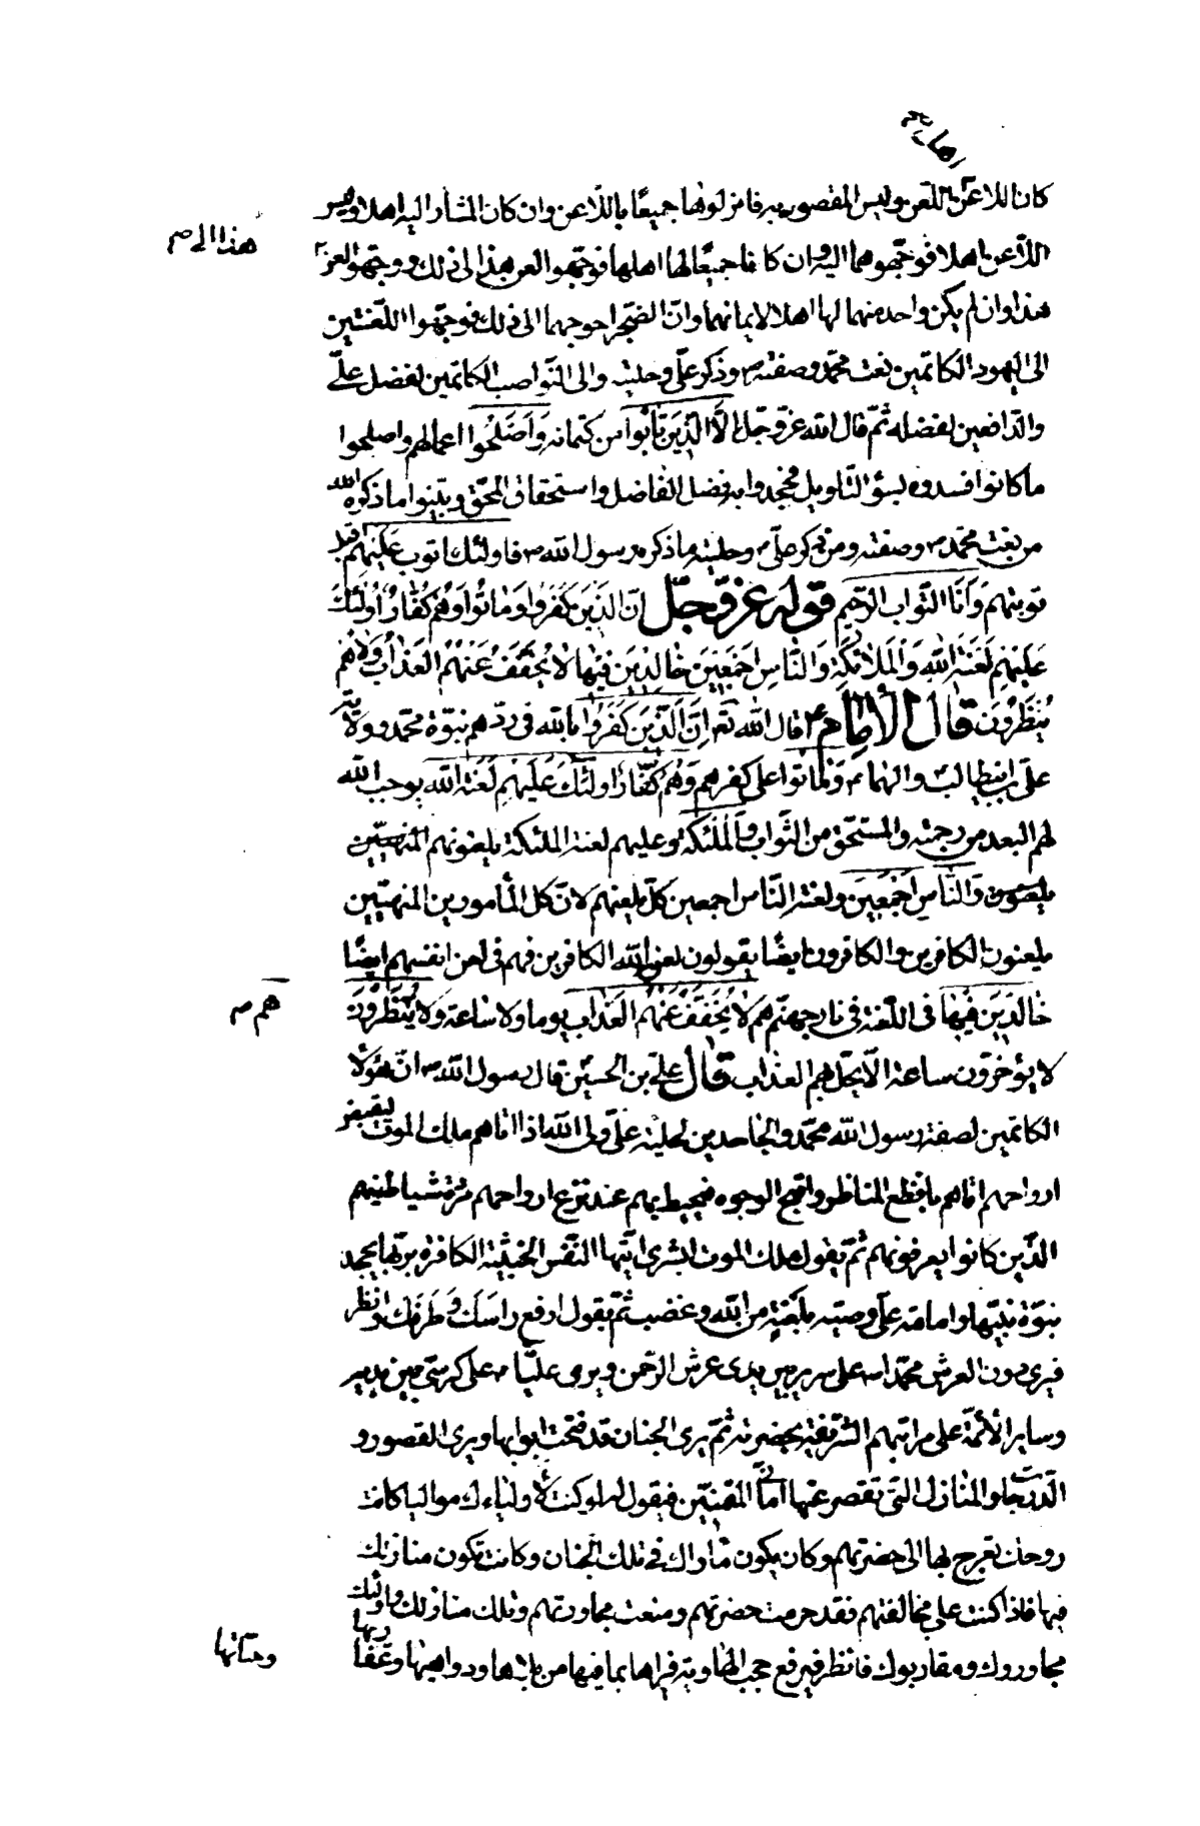 اهلا صح
كان اللاعن للّعن وليس المقصود به فانزلوهما جميعًا باللّاعن وان كان المشار اليه اهلا وليس
اللّاعن اهلا فوجّهوهما اليه وان كانا جميعًا لها اهلها فوجّهوا لعن هذا الى ذلك ووجّهوا لعن
هذا الى صح
هذا وان لم يكن واحد منهما لها اهلا لايمانهما وانّ الضّجر احوجهما الى ذلك فوجّهوا اللّعنتين
الى اليهود الكاتمين نعت محمّد وصفته ص وذكر علّى وحليته والى النّواصب الكاتمين لفضل علّى
والدّافعين لفضله ثمّ قال الله عزّ وجلّ إلّا الّذين تابوا من كتمانه وَاَصلَحُوا اعمالهم واصلحوا
ما كانوا افسدوه بسؤ التّاويل فجحدوا به فضل الفاضل واستحقاق المحقّ وبيّنوا ما ذكره الله
من نعت محمّد ص وصفته ومن ذكر علىّ ع وحليته ما ذكره رسول الله ص فاولئك اتوب عَلَيْهِم اقبل
توبتهم وَاَنَا التّواب الرّحيم قوله عزّ وجلّ انّ الّذين كَفَروا وَمَاتُوا وَهُم كُفّارٌ اُولَئكَ
عَلَيْهِم لَعْنَةُ اللّهِ وَالْمَلائِكَةِ وَالنّاسِ اَجْمَعِينَ خالِدِينَ فيها لا يُخَفَّفُ عَنْهُمُ العَذابُ وَلا هُم
يُنظَرُونَ قال الإمام ع قال الله تعـ اِنَّ الّذينَ كَفَرُوا بالله فى ردّهم نبوّة محمّد وولاية
علىّ بن ابيطالب والهما ع وَمَاتوا على كفرهم وَهُم كُفّارٌ اولئك عَلَيهِم لَعْنَةُ اللّه يوجب الله
لهم البعد من رحمته والمستحقّ من الثّواب والمَلئكة وعليهم لعنة الملئكة يلعنونهم المنهيّين
يلعنون وَالنّاسِ اَجْمَعِينَ ولعنة النّاس اجمعين كلّ يلعنهم لانّ كل المأمورين المنهيّين
يلعنون الكافرين والكافرون ايضًا يقولون لعن الله الكافرين فهم فى لعن انفسهم ايضًا
خالدِينَ فِيها فى اللّعنة فى نار جهنّم هم لا يُخَفَّفُ عَنْهُمُ العَذاب يوما ولا ساعة ولا يُنْظَرُونَ
هم صح
لا يؤخرّون ساعة الّا يحلّ بهم العذاب قال علىّ بن الحسين قال رسول اللّه ص انّ هؤلا
الكاتمين لصفة رسول اللّه محمّد والجاحدين لحلية علىّ ولى اللّه اذا اتاهم ملك الموت ليقبض
ارواحهم اتاهم بافظع المناظر واقبح الوجوه فيحيط بهم عند نزع ارواحهم مردة شياطينهم
الّذين كانوا يعرفونهم ثمّ يقول ملك الموت ابشرى ايّتها النّفس الخبيثة الكافرة بربّها بجحد
نبوّة نبيّها وامامة علىّ وصيّه بلعنةٍ من اللّه وغضب ثمّ يقول ارفع راسَكَ وَطَرفك وانظر
فيرى دون العرش محمّدا ص على سرير بين يدى عرش الرّحمن ويرى عليًّا ع على كرسىّ بين يديه
وساير الأئمّة على مراتبهم الشّريفة بحضرته ثمّ يرى الجنان قد فتحت ابوابها ويرى القصور و
الدّرجات والمنازل الّتى تقصر عنها امانى المتمنّين فيقول له لو كنت لأوليائك مواليا كانت
روحك تعرج بها الى حضرتهم وكان يكون ماواك فى تلك الجنان وكانت تكون منازلك
فيها فاذا كنت على مخالفتهم فقد حرمت حضرتهم ومنعت مجاورتهم وتلك منازلك واولئك
مجاوروك ومقاربوك فانظر فيرفع حجب الهاوية فيراها بما فيها من بلاياها ودواهيها وعقاربها
وحيّاتها